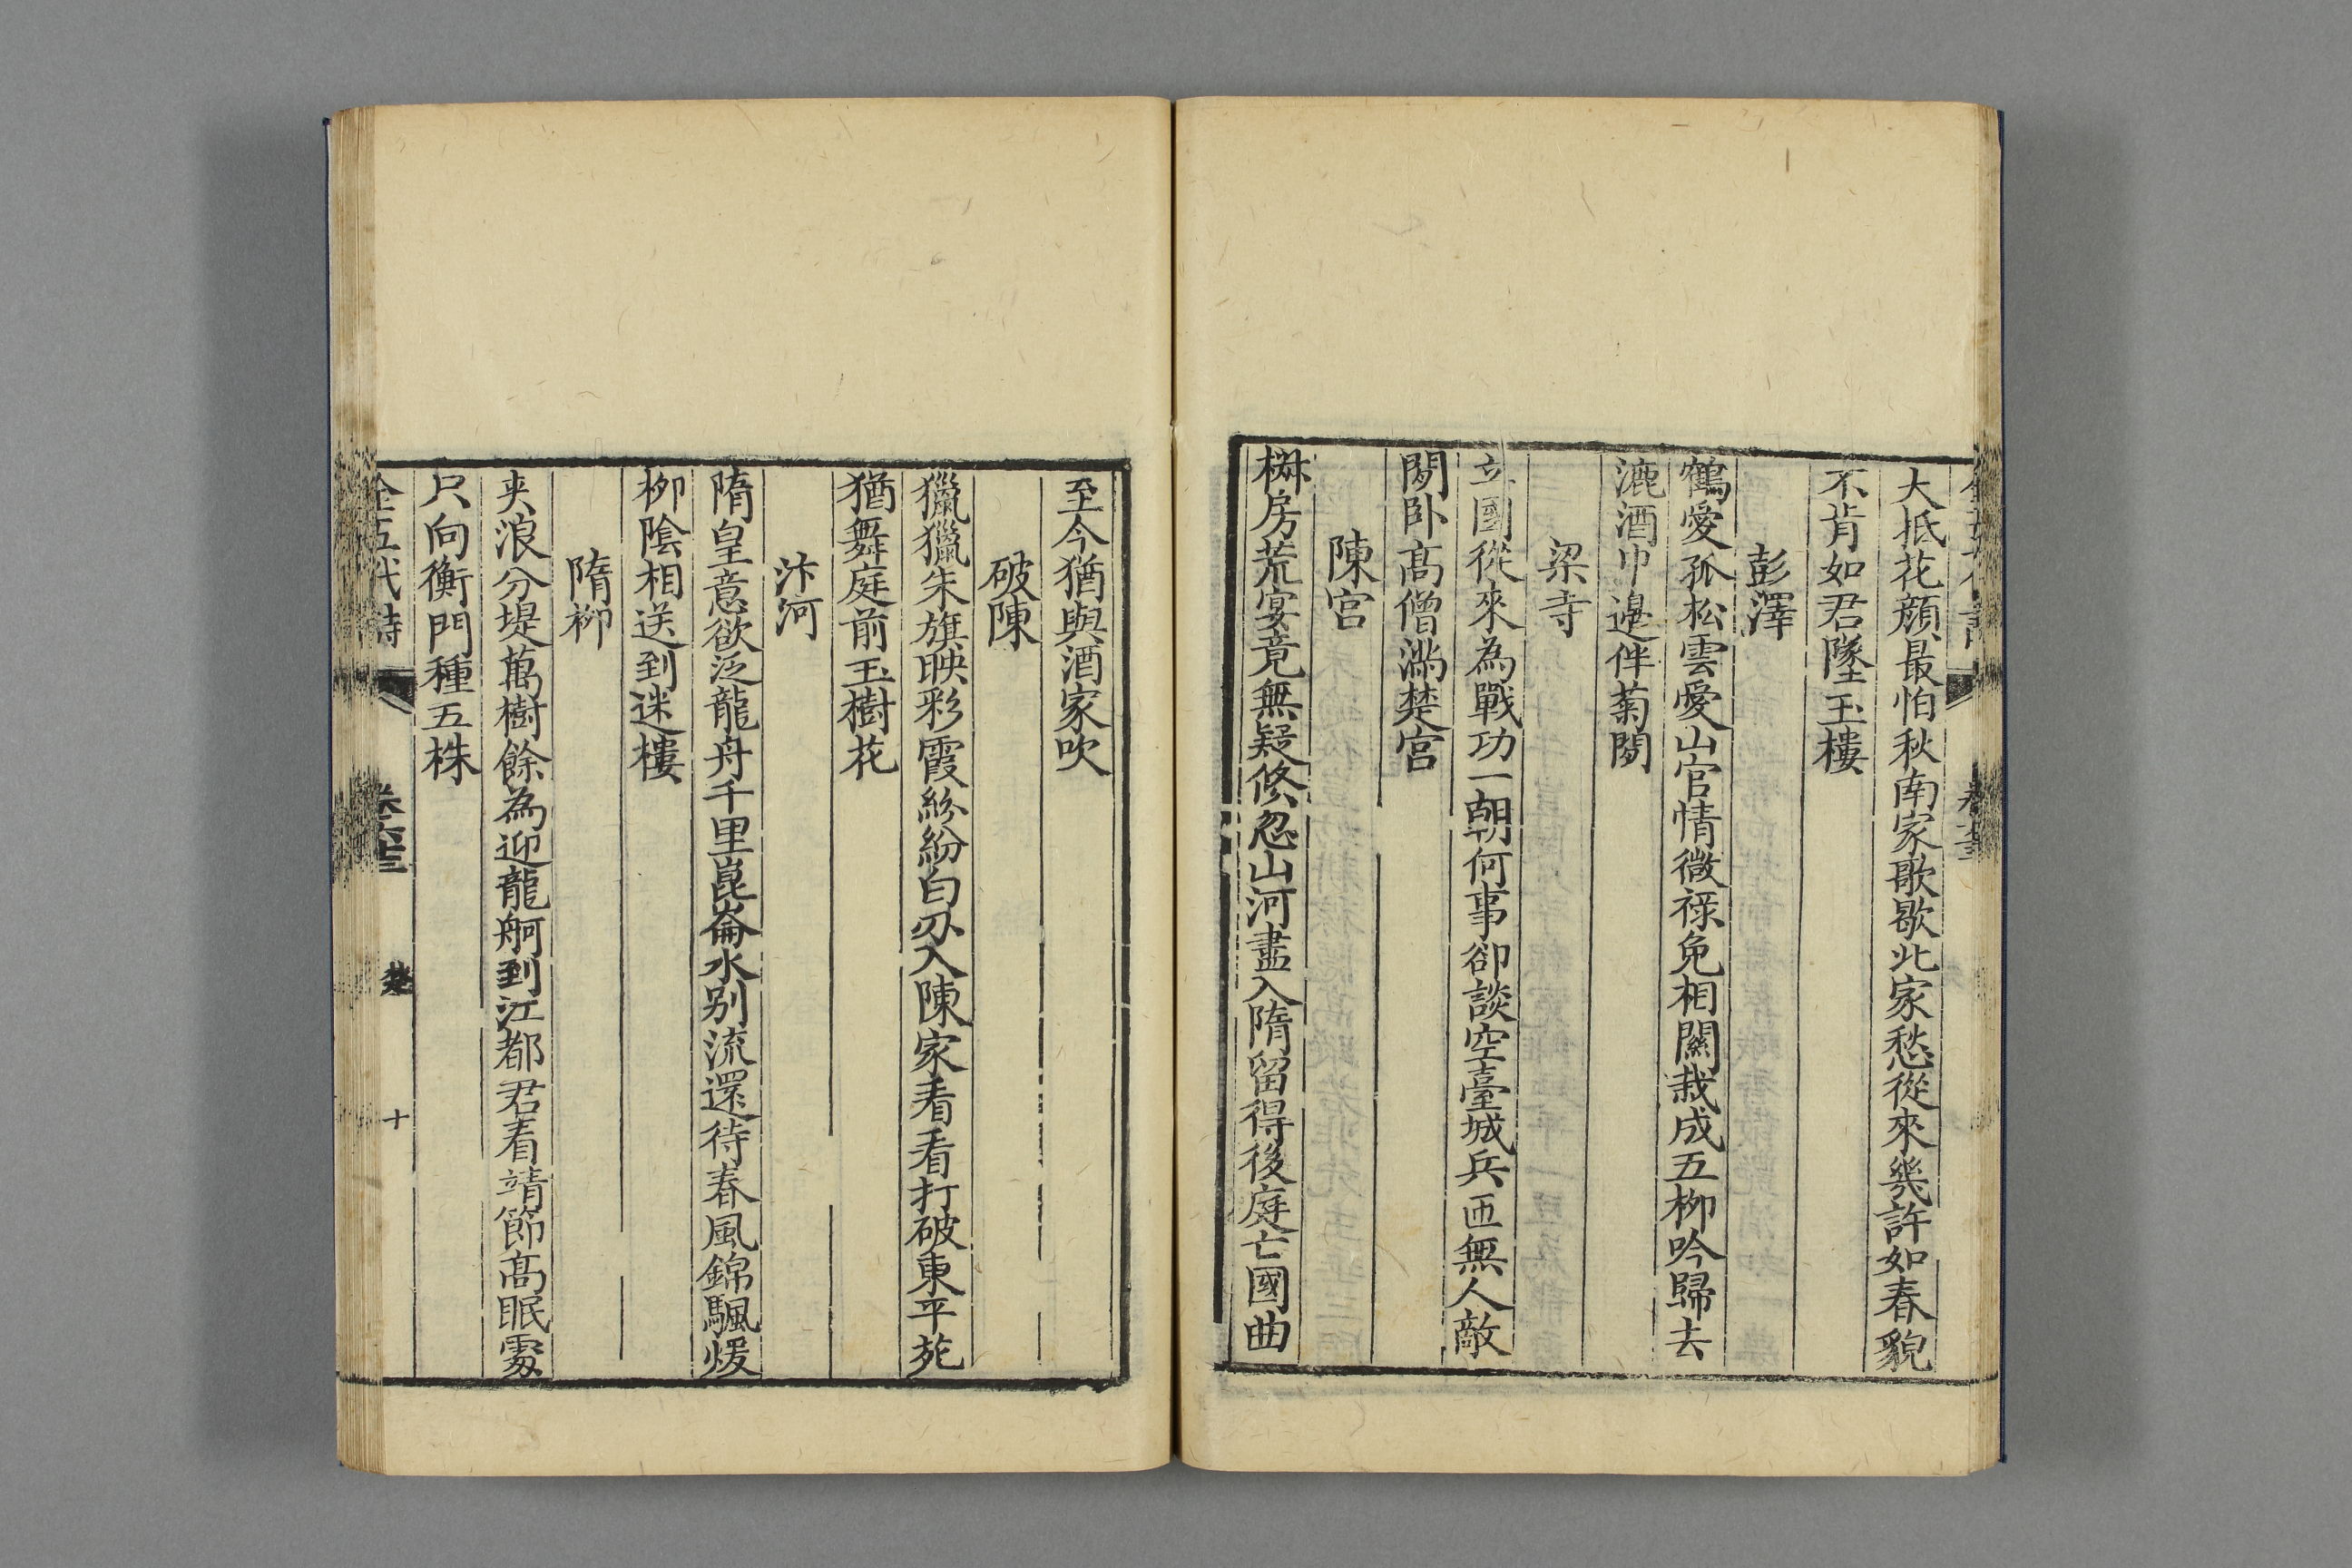 大抵花顔最怕秋南家歌歇北家愁從來幾許如春貌
不肯如君墜玉樓
彭澤
鶴愛孤松雲愛山宦情微祿免相關栽成五柳吟歸去
漉酒巾邊伴菊閒
梁寺
立國從來為戰功一朝何事卻談空臺城兵匝無人敵
閒卧髙僧滿楚宮
陳宮
椒房荒宴竟無疑倏忽山河盡入隋留得後庭亡國曲
至今猶與酒家吹
破陳
獵獵朱旗映彩霞紛紛白刃入陳家看看打破東平苑
猶舞庭前玉樹花
汴河
隋皇意欲泛龍舟千里崑崙水别流還待春風錦颿煖
柳陰相送到迷樓
隋柳
夾浪分堤萬樹餘為迎龍舸到江都君看靖節髙眠處
只向衡門種五株
全五代詩
十